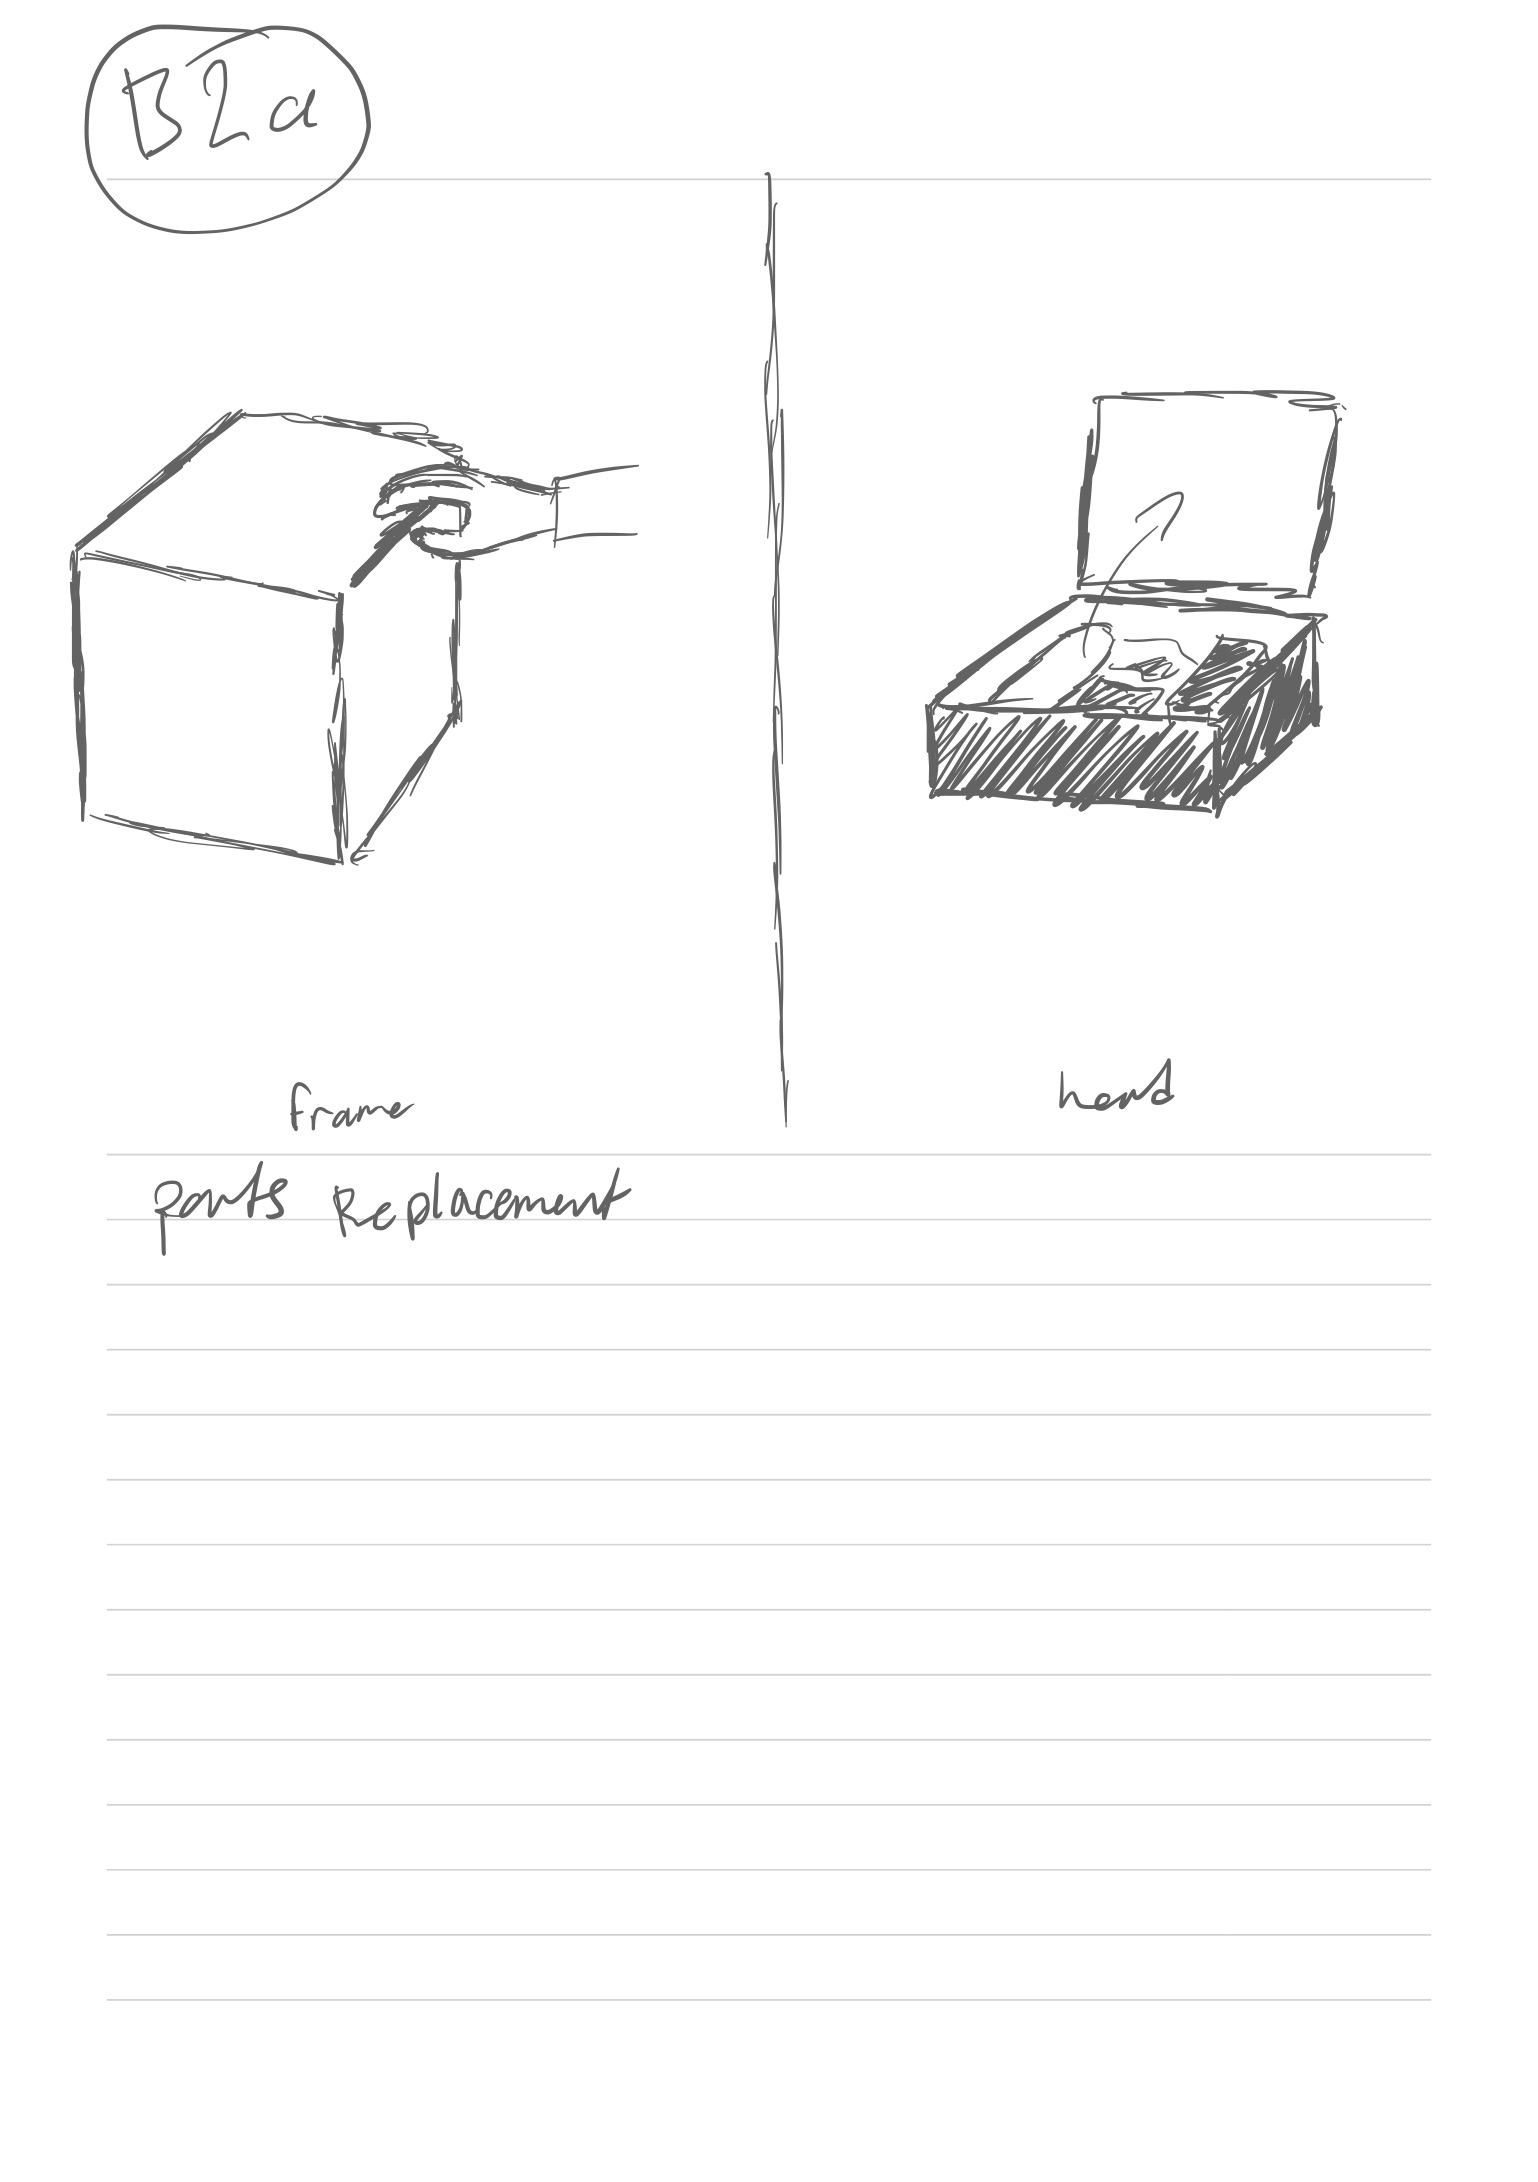 B2a
frame
head
parts Replacement